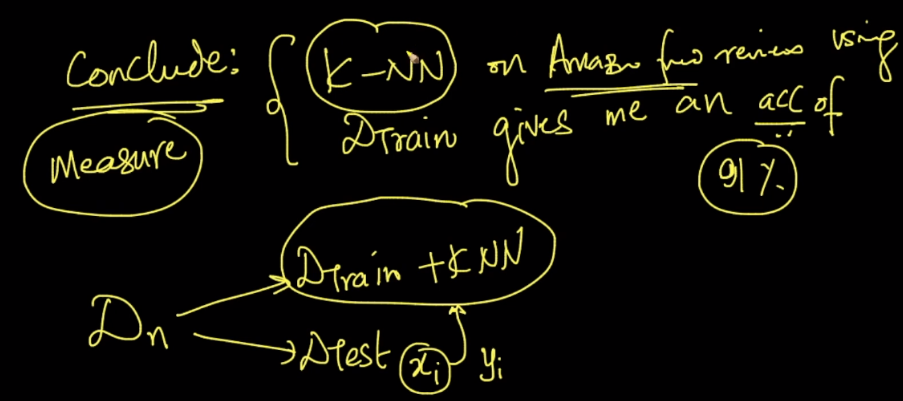 Conclude: { K-NN on Amazon reviews using
Dtrain gives me an acc of
Measure
91%
Dtrain + K NN
Dn
Dtest xi yi